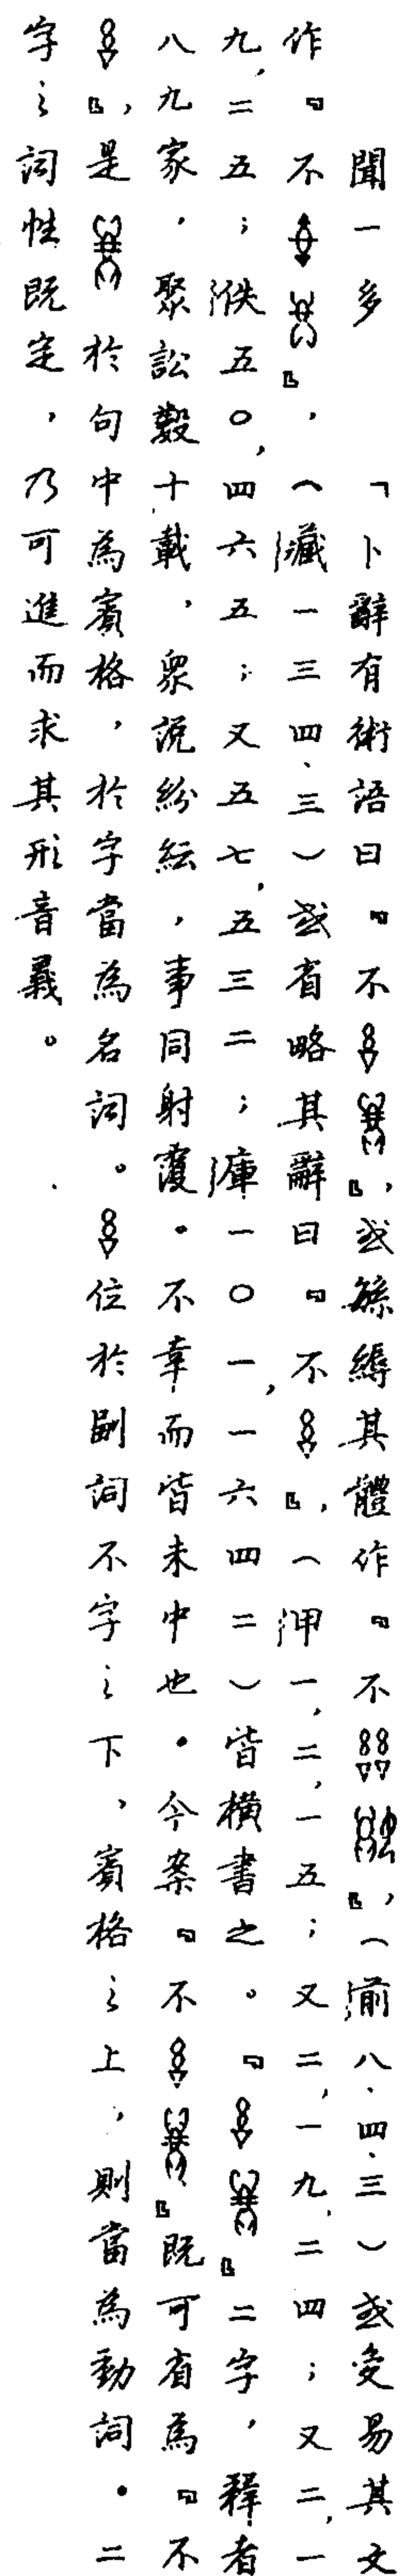 聞一多　　「卜辭有術語曰『不』，或緐縟其體作『不』，（前八．四．三）或變易其文
作『不』，（藏一三四．三）或省略其辭曰『不』，（甲一，二，一五；又二，一九，二四；又二，一
九，二五；佚五〇，四六五；又五七，五三二；庫一〇一，一六四二）皆橫書之。『』二字，釋者
八九家，聚訟數十載，衆說紛紜，事同射覆。不幸而皆未中也。今案『不』既可省為『不
』，是於句中為賓格，於字當為名詞。位於副詞不字之下，賓格之上，則當為動詞。二
字之詞性既定，乃可進而求其形音義。